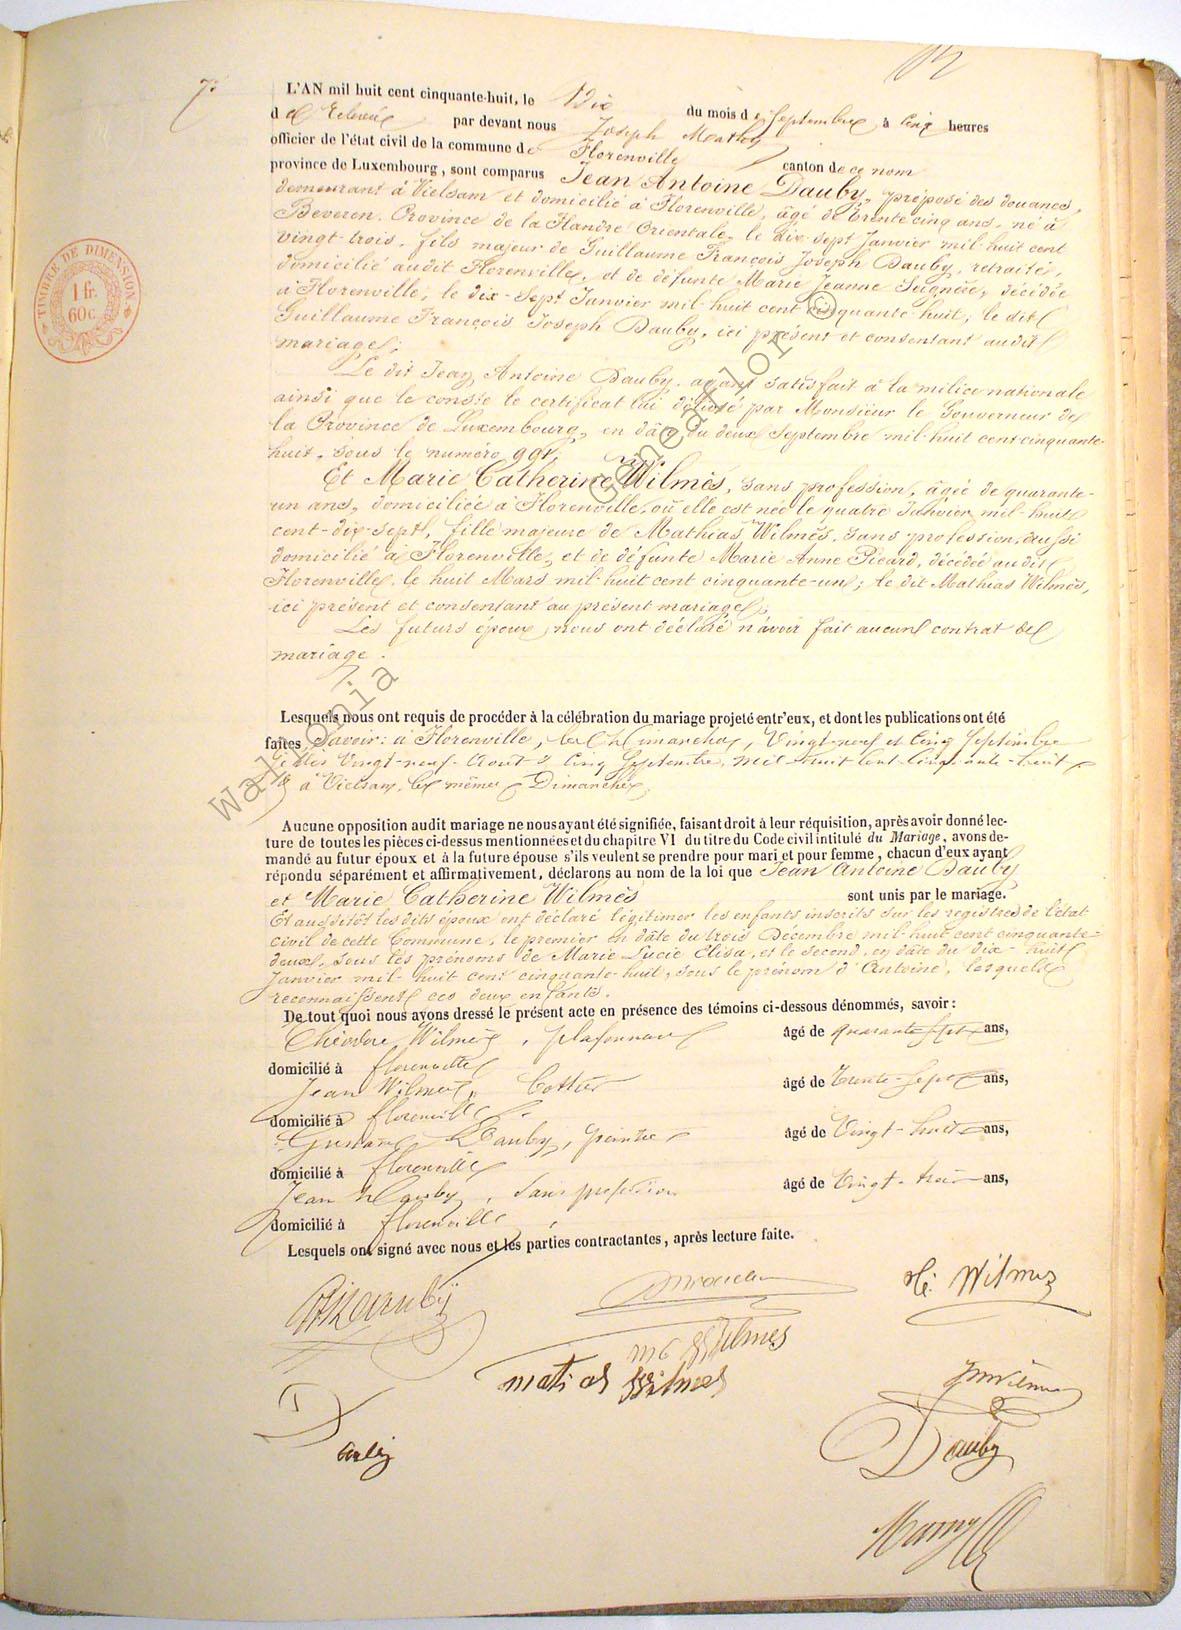 7.
L'AN mil huit cent cinquante-huit, le Dix du mois de Septembre à Cinq heures
d par devant nous Joseph
officier de l'état civil de la commune de Florenville canton de ce nom
province de Luxembourg, sont comparus Jean Antoine Dauby, préposé des douanes,
demeurant à Vielsam et domicilié à Florenville, âgé de trente cinq ans, né à
Beveren. Province de la Flandre Orientale, le dix-sept Janvier mil huit cent
vingt-trois, fils majeur de Guillaume François Joseph Dauby, retraité,
domicilié audit Florenville, et de défunte Marie Jeanne décédée
à Florenville, le dix-sept Janvier mil huit cent cinquante huit; le dit
Guillaume François Joseph Dauby, ici présent et consentant audit
mariage;
Le dit Jean Antoine Dauby, ayant satisfait à la milice nationale
ainsi que le conste le certificat lui délivré par Monsieur le Gouverneur de
la Province de Luxembourg, en dâte du deux Septembre mil-huit cent cinquante-
huit, sous le numéro 991;
Et Marie Catherine Wilmès, sans profession, âgée de quarante-
un ans, domiciliée à Florenville, où elle est née le quatre Janvier mil-huit
cent-dix-sept, fille majeure de Mathias Wilmès, sans profession, aussi
domicilié à Florenville, et de défunte Marie Anne Picard, décédée audit
Florenville, le huit Mars mil-huit cent cinquante-un; le dit Mathias Wilmès,
ici présent et consentant au présent mariage;
Les futurs époux, nous ont déclaré n'avoir fait aucun contrat de
mariage.
Lesquels nous ont requis de procéder à la célébration du mariage projeté entr'eux, et dont les publications ont été
faites Savoir: à Florenville, les Dimanches, Vingt-neuf et Cinq Septembre
Vingt-neuf Aout & Cinq Septembre, mil-huit Cent Cinquante-huit.
& à Vielsam, les mêmes Dimanches.
Aucune opposition audit mariage ne nous ayant été signifiée, faisant droit à leur réquisition, après avoir donné lec-
ture de toutes les pièces ci-dessus mentionnées et du chapitre VI du titre du Code civil intitulé du Mariage, avons de-
mandé au futur époux et à la future épouse s'ils veulent se prendre pour mari et pour femme, chacun d'eux ayant
répondu séparément et affirmativement, déclarons au nom de la loi que Jean Antoine Dauby
et Marie Catherine Wilmès sont unis par le mariage.
Et aussitôt les dits époux ont déclaré légitimer les enfants inscrits sur les registres de l'état
civil de cette Commune, le premier en dâte du trois Décembre mil-huit cent cinquante-
deux, sous les prénoms de Marie Lucie Elisa, et le second, en dâte du dix-huit
Janvier mil-huit cent cinquante-huit, sous le prénom d'Antoine, lesquels
reconnaissent ces deux enfants.
De tout quoi nous avons dressé le présent acte en présence des témoins ci-dessous dénommés, savoir:
Théodore Wilmès, plafonneur âgé de quarante-sept ans,
domicilié à Florenville
Jean Wilmès, âgé de Trente-Sept ans,
domicilié à Florenville
Gustave Dauby, peintre âgé de Vingt-huit ans,
domicilié à Florenville
Jean Dauby, Sans profession âgé de Vingt-trois ans,
domicilié à Florenville
Lesquels ont signé avec nous et les parties contractantes, après lecture faite.
Wilmes
mc Wilmes
matias Wilmes
Dauby
Dauby
TIMBRE DE DIMENSION
1 fr.
60 c.
Wallonia Geneaflor ©